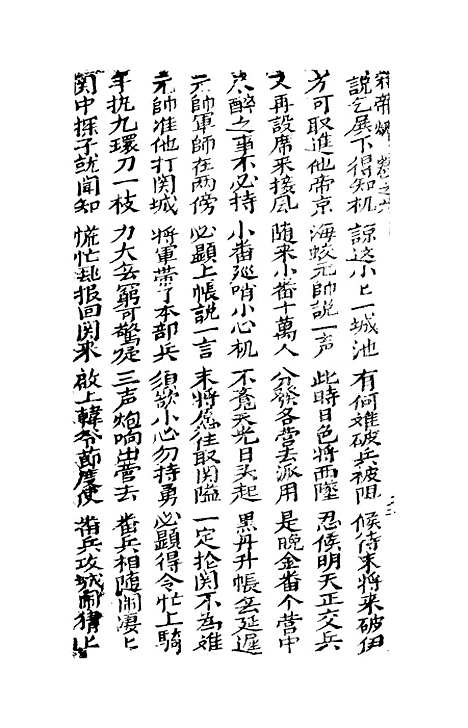 卷之六
說乞展下得知机 諒这小匕一城池 有何难破兵被阻 候待末將来破伊
方可取進他帝京 海蛟元帥說一声 此時日色將西墜 忍候明天正交兵
又再設席来接風 随来小番十萬人 分發各营去派用 是晚金番个营中
醉之事不必持 小番廵哨小心机 不竟天光日头起 黑丹升帳無延遲
元帥軍師在两傍 必顕上帳說一言 末將愿往取関隘 一定抢関不為难
元帥准他打関城 將軍帶了本部兵 須欲小心勿持勇 必顕得令忙上騎
手执九環刀一枝 力大無窮可驚疑 三声炮响出营去 番兵相随闹凄匕
関中探子就闻知 慌忙走报回関来 啟上韓爷節度使 番兵攻城闹猜匕